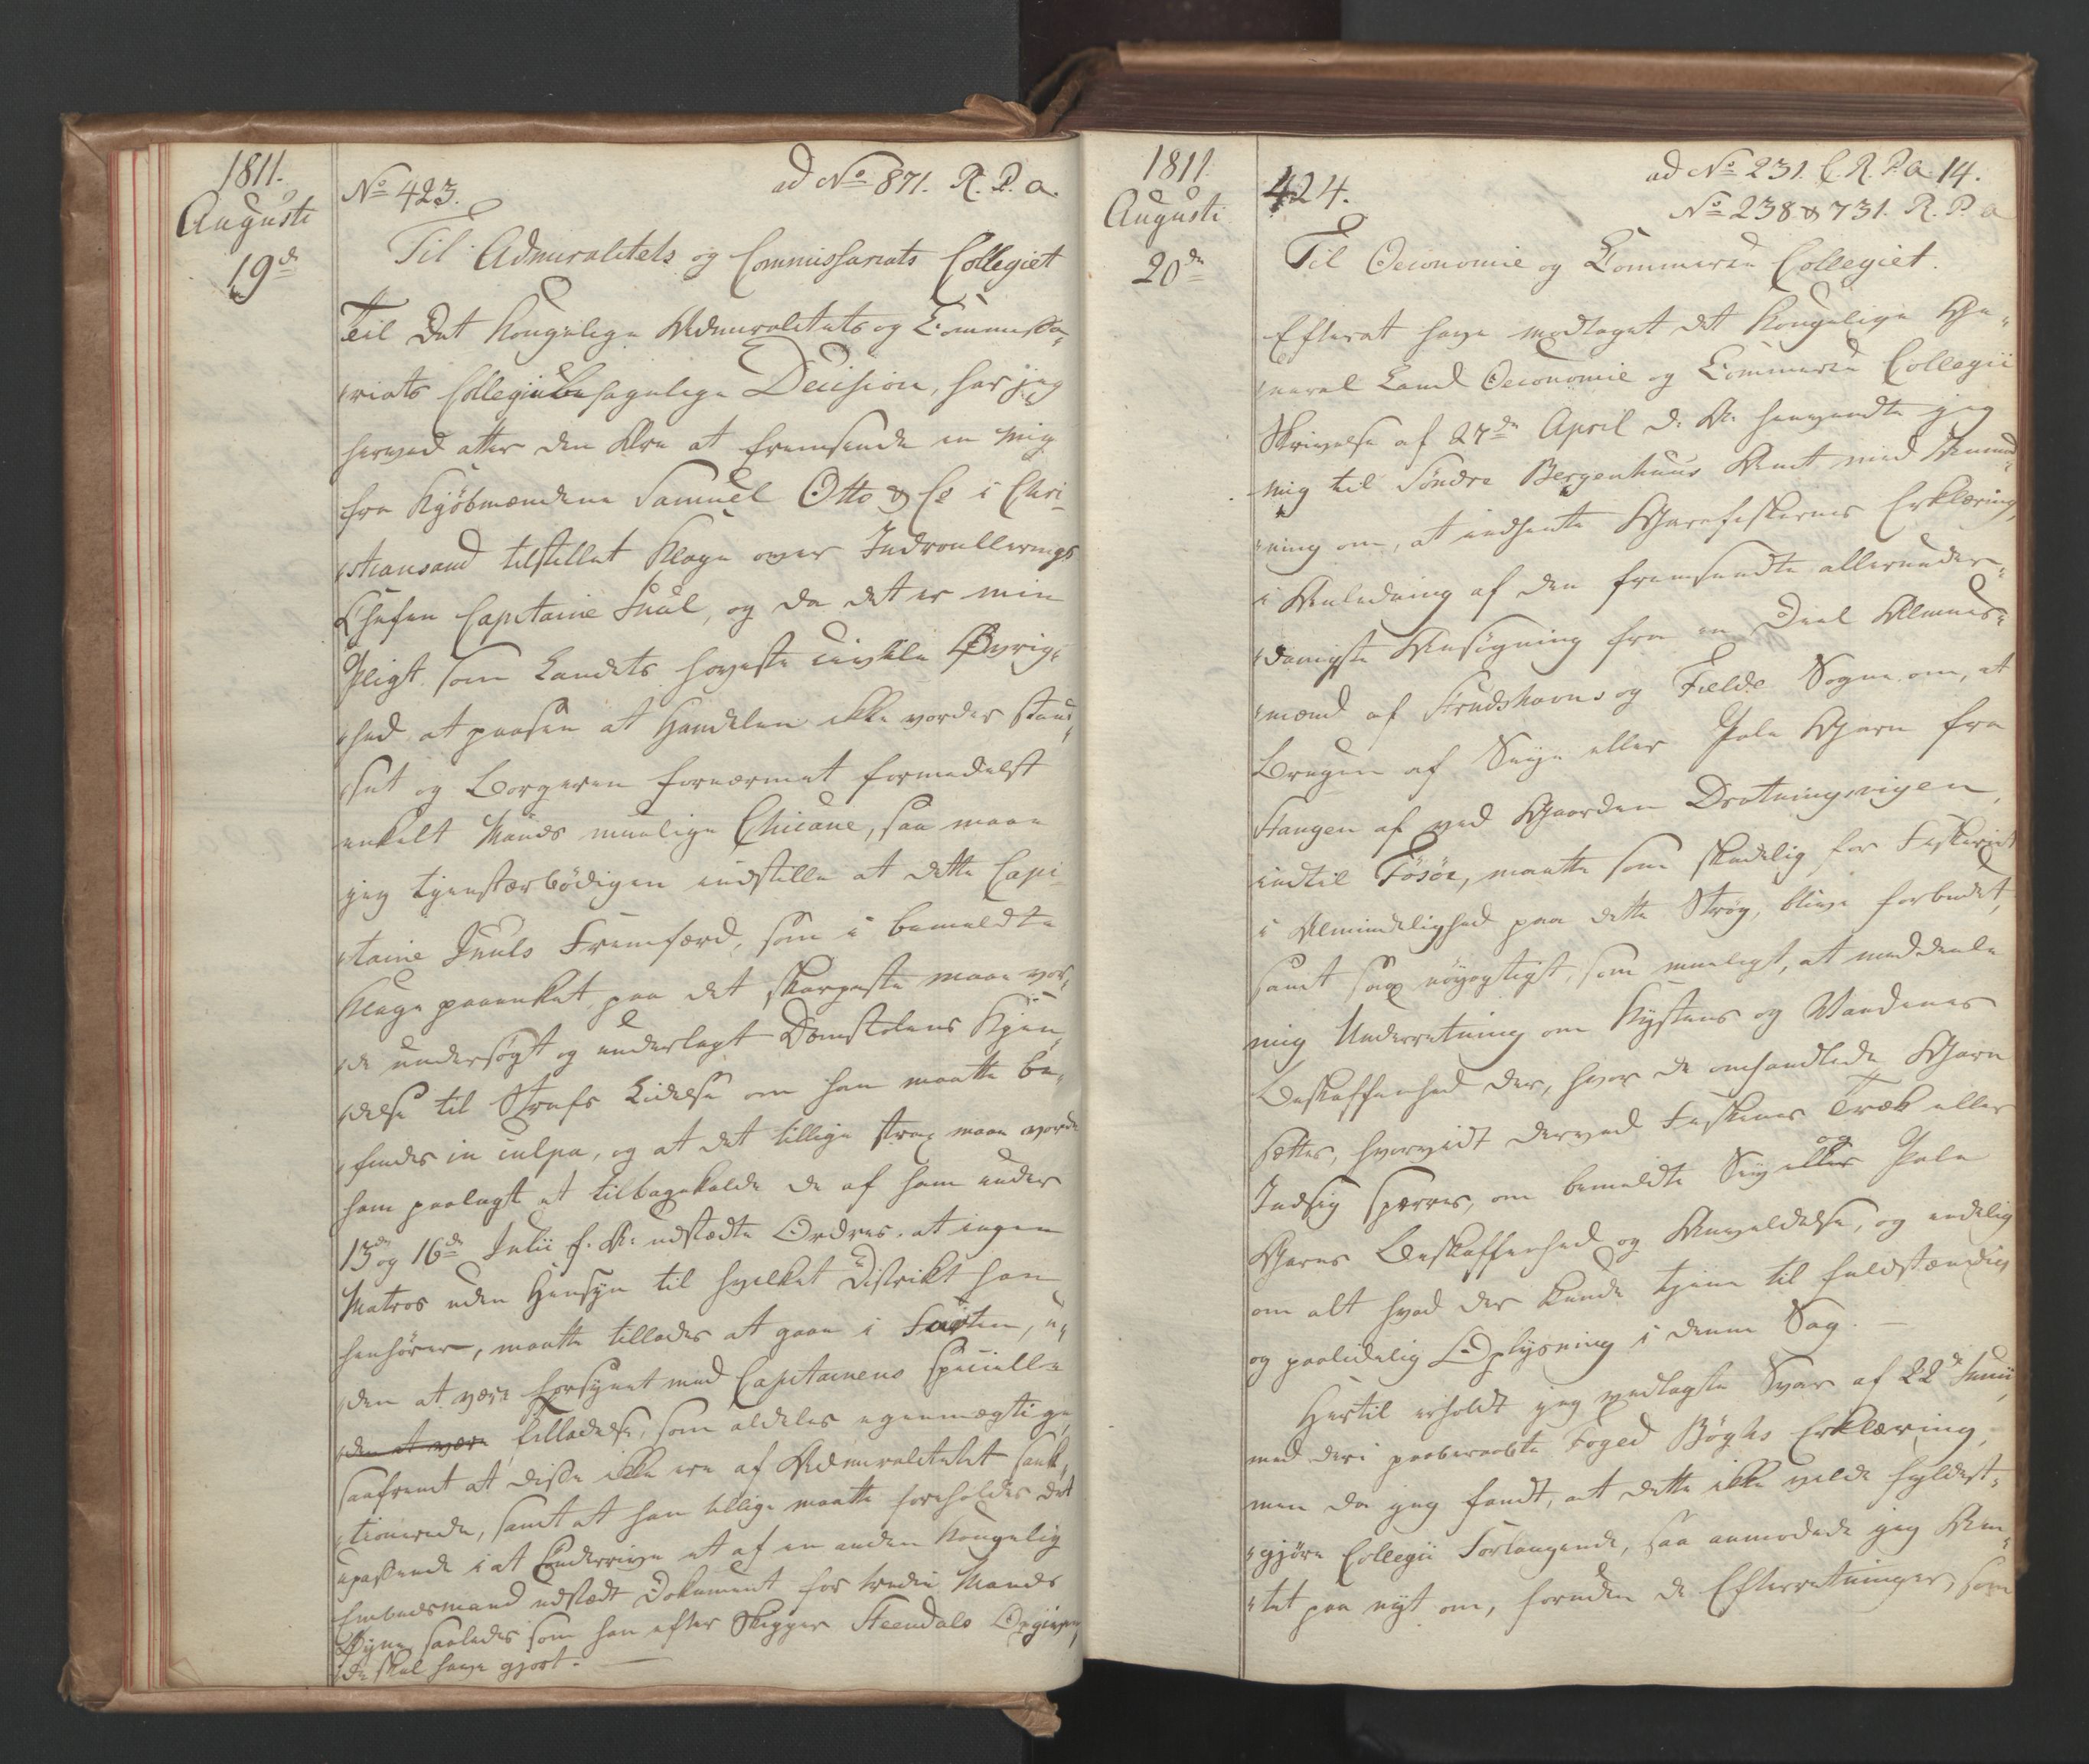 1811.
Augusti
19de
No 423.
ad No 871. R. P. a.
Til Admiralitets og Commissariats Collegiet
Til Det Kongelige Admiralitets og Commissa„
„riats Collegii behagelige Decision, har jeg
herved atter den Ære at fremsende en mig
fra Kjøbmændene Samuel Otto & Co i Chri„
„stiansand tilstillet Klage over Indroullerings
Chefen Capitaine Juul, og da det er min
Pligt som Landets høyeste civile Øvrig„
„hed at paasee at Handelen ikke vorder stand„
„set og Borgeren fornærmet formedelst
enkelt Mands muelige Chicane, saa maae
jeg tjenstærbödigen indstille at dette Capi„
„taine Juuls Fremfærd, som i bemeldte
Klage paaanket, paa det skarpeste maae vor„
„de undersøgt og underlagt Domstolens Kjen„
„delse til Strafs Lidelse om han maatte be„
„findes in culpa, og at det tillige strax maae vorde
ham paalagt at tilbagekalde de af ham under
13de og 16de Julii f. A: udstædte Ordres, at ingen
Matros uden Hensyn til hvilket District han
henhører, maatte tillades at gaae i Farten, u„
„den at være forsynet med Capitainens specielle
„den at være tilladelse, som aldeles egenmægtige,
saafremt at disse ikke ere af Admiralitetet sank„
„tionerede, samt at han tillige maatte foreholdes det
upassende i at sønderrive et af en anden Kongelig
Embedsmand udstædt Dokument for tredie Mands
Øyne, saaledes som han efter Skipper Steendals Opgiven„
„de skal have gjort. —
1811.
Augusti
20de
424.
ad No 231. C. R. P. a 14.
No 238 & 731. R. P. a
Til Oeconomie og Commerce Collegiet.
Efterat have modtaget det Kongelige Ge„
„neral Land Oeconomie og Commerce Collegii
Skrivelse af 27de April d: A: henvendte jeg
mig til Söndre Bergenhuus Amt med Anmod„
„ning om, at indhente Garnfiskernes Erklæring,
i Anledning af den fremsendte allerunder„
„danigste Ansögning fra en Deel Almues„
„mænd af Strudshavns og Fielde Sogne om, at
Brugen af Seye eller Pale Garn fra
Stangen af ved Gaarden Drotningvigen,
indtil Fösöe, maatte som skadelig for Fiskeriet
i Almindelighed paa dette Strøg, blive forbudet,
samt saa nöyagtigt, som mueligt, at meddeele
mig Underretning om Kystens og Vandenes
Beskaffenhed der, hvor de omhandlede Garn
sættes, hvorvidt derved Fiskenes Træk eller
Indsig spærres, om bemeldte Sey eller og Pale
Garns Beskaffenhed og Anvendelse, og endelig
om alt hvad der kunde tjene til fuldstændig
og paalidelig Oplysning i denne Sag. —
Hertil erholdt jeg vedlagte Svar af 22de Junii,
med deri paaberaabte Foged Böghs Erklæring,
men da jeg fandt, at dette ikke vilde fyldest„
„gjöre Collegii Forlangende, saa anmodede jeg Am„
„tet paa nyt om, foruden de Efterretninger, som